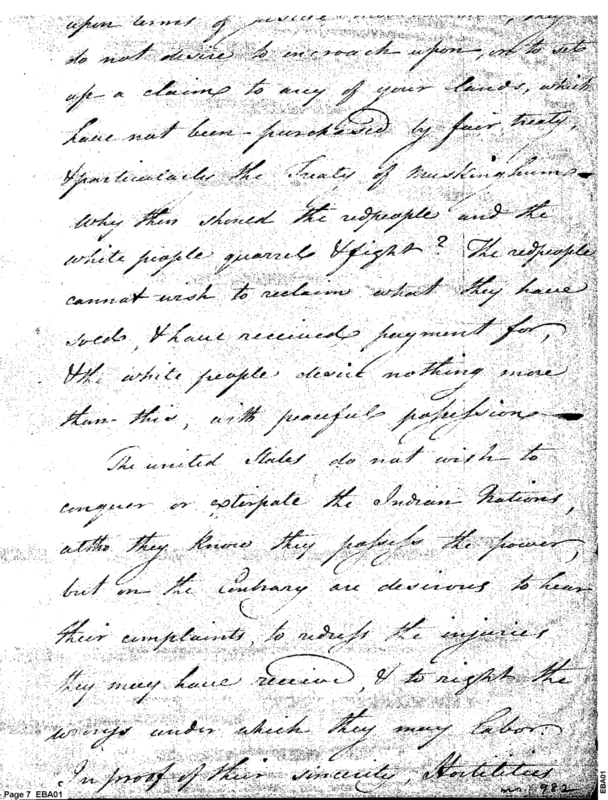 upon terms of justice they
do not desire to incroach upon, or to set
up a claim to any of your lands, which
have not been purchased by fair treaty,
& particularly the Treaty of Muskinghum —
Why then should the redpeople and the
white people quarrel & fight? The redpeople
cannot wish to reclaim what they have
sold, & have received payment for,
& the white people desire nothing more
than this, with peaceful possession —
The united States do not wish to
conquer or extirpate the Indian Nations,
altho they know they possess the power,
but on the Contrary are desirous to hear
their complaints, to redress the injuries
they may have receive, & to right the
wrongs under which they may labor.
In proof of their sincerity, Hostilities
982
Page 7 EBA01
EBA01